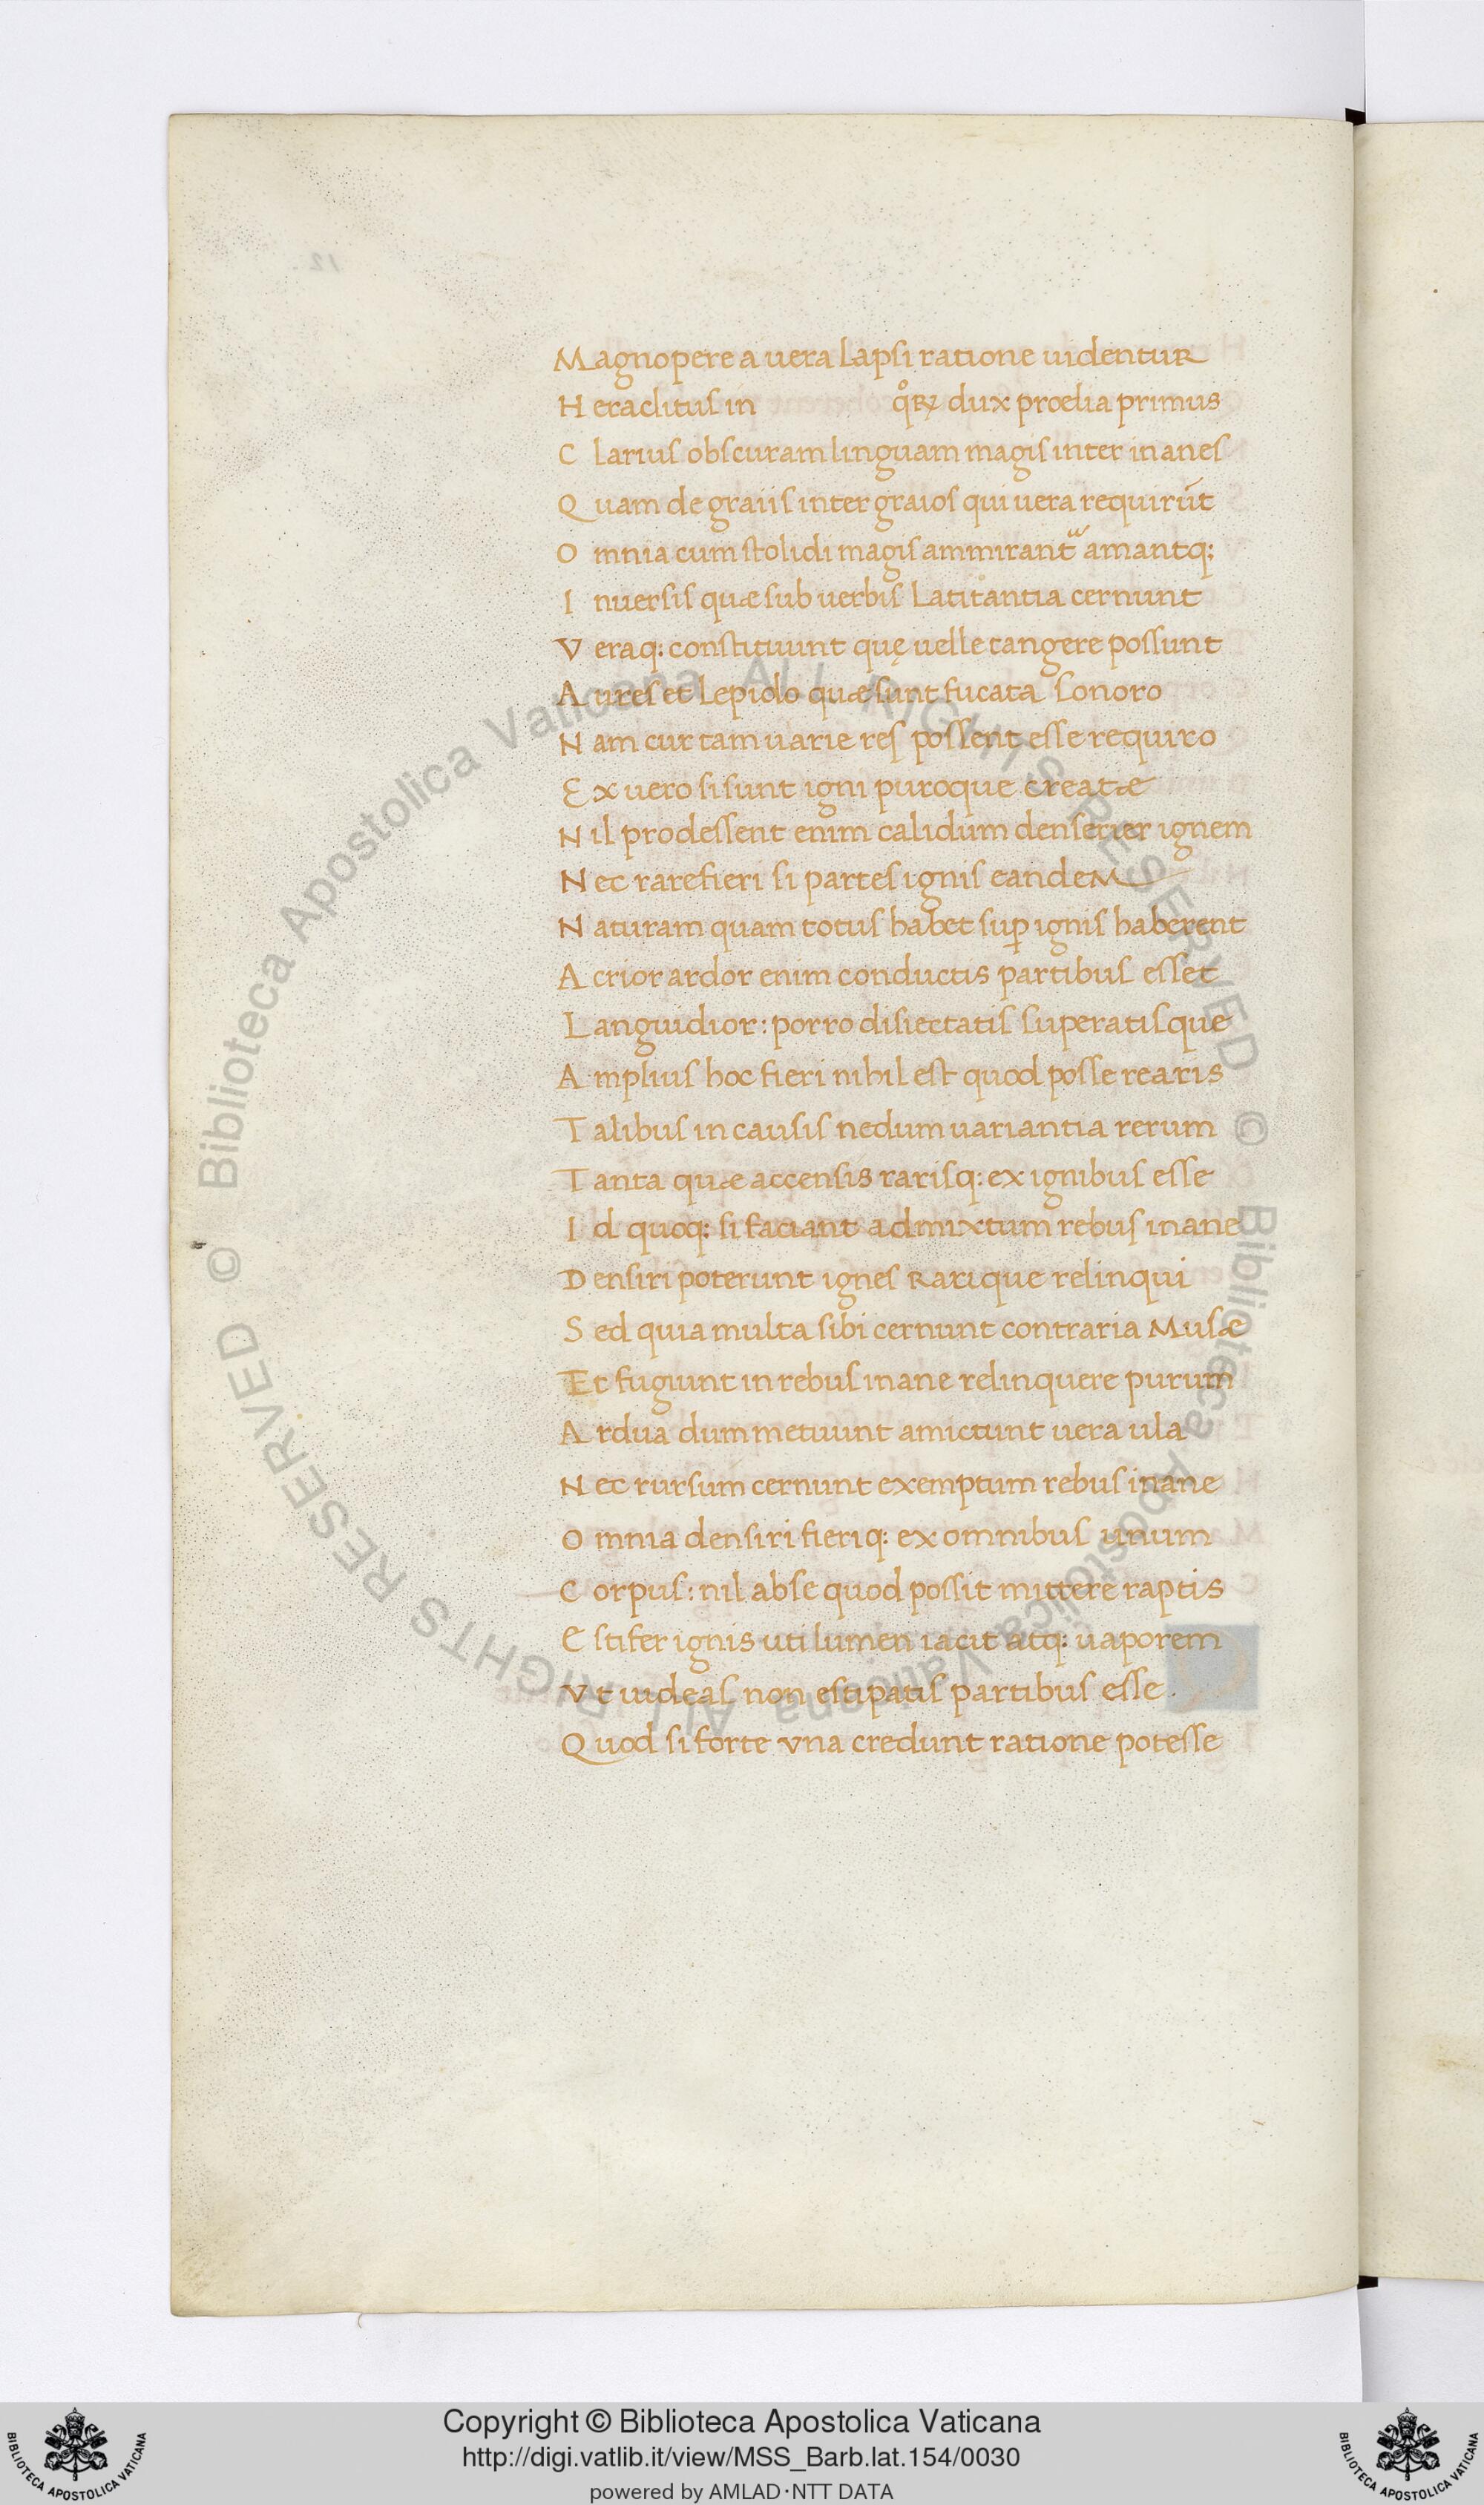 Magnopere a uera lapsi ratione uidentur
Heraclitus in qͦꝝ dux prœlia primus
Clarius obscuram linguam magis inter inanes
Quam de graiis inter graios qui uera requirūt
Omnia cum stolidi magis ammirant᷑ amantq:
Inuersis quæ sub uerbis latitantia cernunt
Veraq: constituunt quę uelle tangere possunt
Aures et lepido quæ sunt fucata sonoro
Nam cur tam uarie res possent esse requiro
Ex uero si sunt igni puroque creatæ
Nil prodessent enim calidum denserier ignem
Nec rarefieri si partes ignis eandem
Naturam quam totus habet suꝑ ignis haberent
Acrior ardor enim conductis partibus esset
Languidior: porro disiectatis superatisque
Amplius hoc fieri nihil est quod posse rearis
Talibus in causis nedum uariantia rerum
Tanta quæ accensis rarisq: ex ignibus esse
Id quoq: si faciant admixtum rebus inane
Densiri poterunt ignes rarique relinqui
Sed quia multa sibi cernunt contraria Musæ
Et fugiunt in rebus inane relinquere purum
Ardua dum metuunt amictunt uera uia
Nec rursum cernunt exemptum rebus inane
Omnia densiri fieriq: ex omnibus unum
Corpus: nil abse quod possit mittere raptis
Estifer ignis uti lumen iacit atq: uaporem
Vt uideas non estipatis partibus esse
Quod si forte vna credunt ratione potesse
12
© Biblioteca Apostolica Vaticana ALL RIGHTS RESERVED © Biblioteca Apostolica Vaticana ALL RIGHTS RESERVED
Copyright © Biblioteca Apostolica Vaticana
http://digi.vatlib.it/view/MSS_Barb.lat.154/0030
powered by AMLAD·NTT DATA
BIBLIOTECA APOSTOLICA VATICANA
BIBLIOTECA APOSTOLICA VATICANA